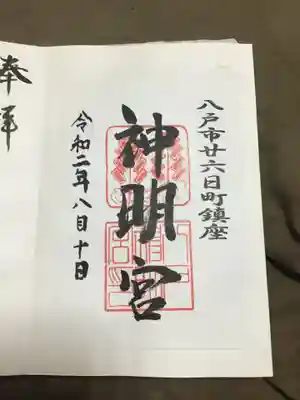 八戸市廿六日町鎮座
神明宮
令和二年八月十日
奉拝